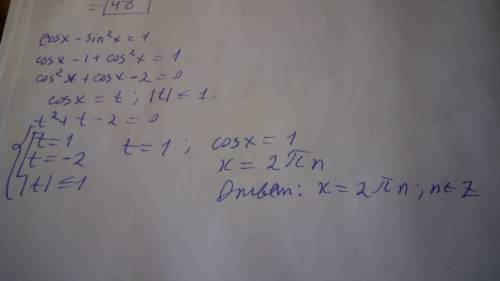 = 48
cosx - sin²x = 1
cosx - 1 + cos²x = 1
cos²x + cosx - 2 = 0
cosx = t ; |t| ≤ 1.
t² + t - 2 = 0
t = 1
t = -2
|t| ≤ 1
t = 1 ; cosx = 1
x = 2πn
Ответ: x = 2πn ; n ∈ Z